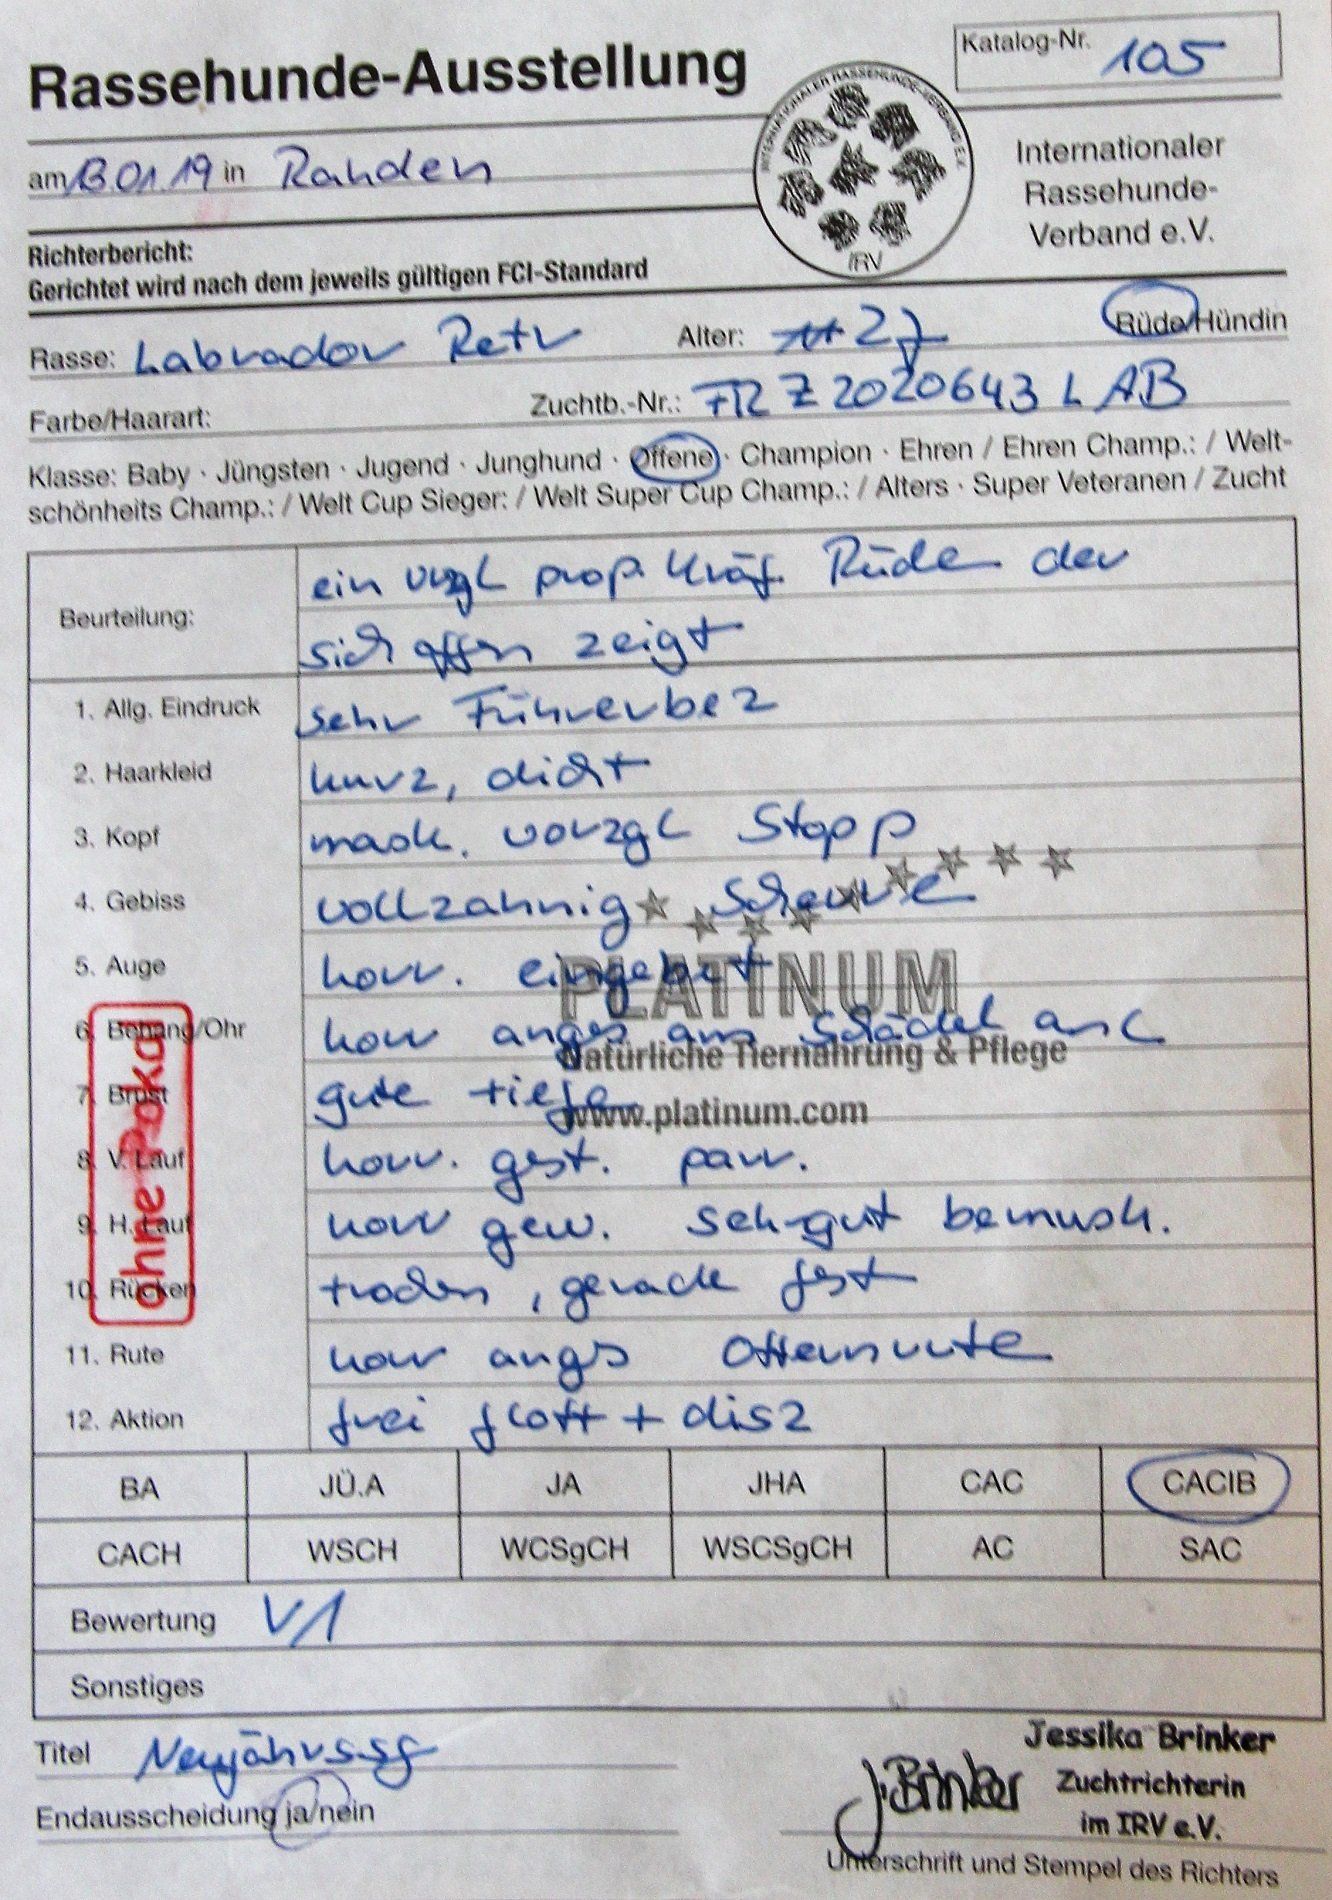 Rassehunde-Ausstellung
Katalog-Nr. 105
INTERNATIONALER RASSEHUNDE-VERBAND E.V.
IRV
Internationaler
Rassehunde-
Verband e.V.
am 13.01.19 in Rahden
Richterbericht:
Gerichtet wird nach dem jeweils gültigen FCI-Standard
Rasse: Labrador Retr Alter: 2 J Rüde/Hündin
Farbe/Haarart: Zuchtb.-Nr.: FR Z 2020643 LAB
Klasse: Baby · Jüngsten · Jugend · Junghund · Offene · Champion · Ehren / Ehren Champ.: / Welt-
schönheits Champ.: / Welt Cup Sieger: / Welt Super Cup Champ.: / Alters · Super Veteranen / Zucht
Beurteilung: ein vzgl prop. kräf. Rüde der
sich offen zeigt
1. Allg. Eindruck sehr Führerbez
2. Haarkleid kurz, dicht
3. Kopf mask. vorzgl Stopp
4. Gebiss vollzahnig Schere
5. Auge korr. eingebet
6. Behang/Ohr korr anges am Schädel anl
7. Brust gute tiefe
8. V. Lauf korr. gest. parr.
9. H. Lauf korr gew. sehr gut bemusk.
10. Rücken trocken, gerade fest
11. Rute korr angs Otterrute
12. Aktion frei flott + disz
ohne Pokal
PLATINUM
Natürliche Tiernahrung & Pflege
www.platinum.com
BA JÜ.A JA JHA CAC CACIB
CACH WSCH WCSgCH WSCSgCH AC SAC
Bewertung V1
Sonstiges
Titel Neujahrssg
Endausscheidung ja/nein
J. Brinker
Jessika Brinker
Zuchtrichterin
im IRV e.V.
Unterschrift und Stempel des Richters